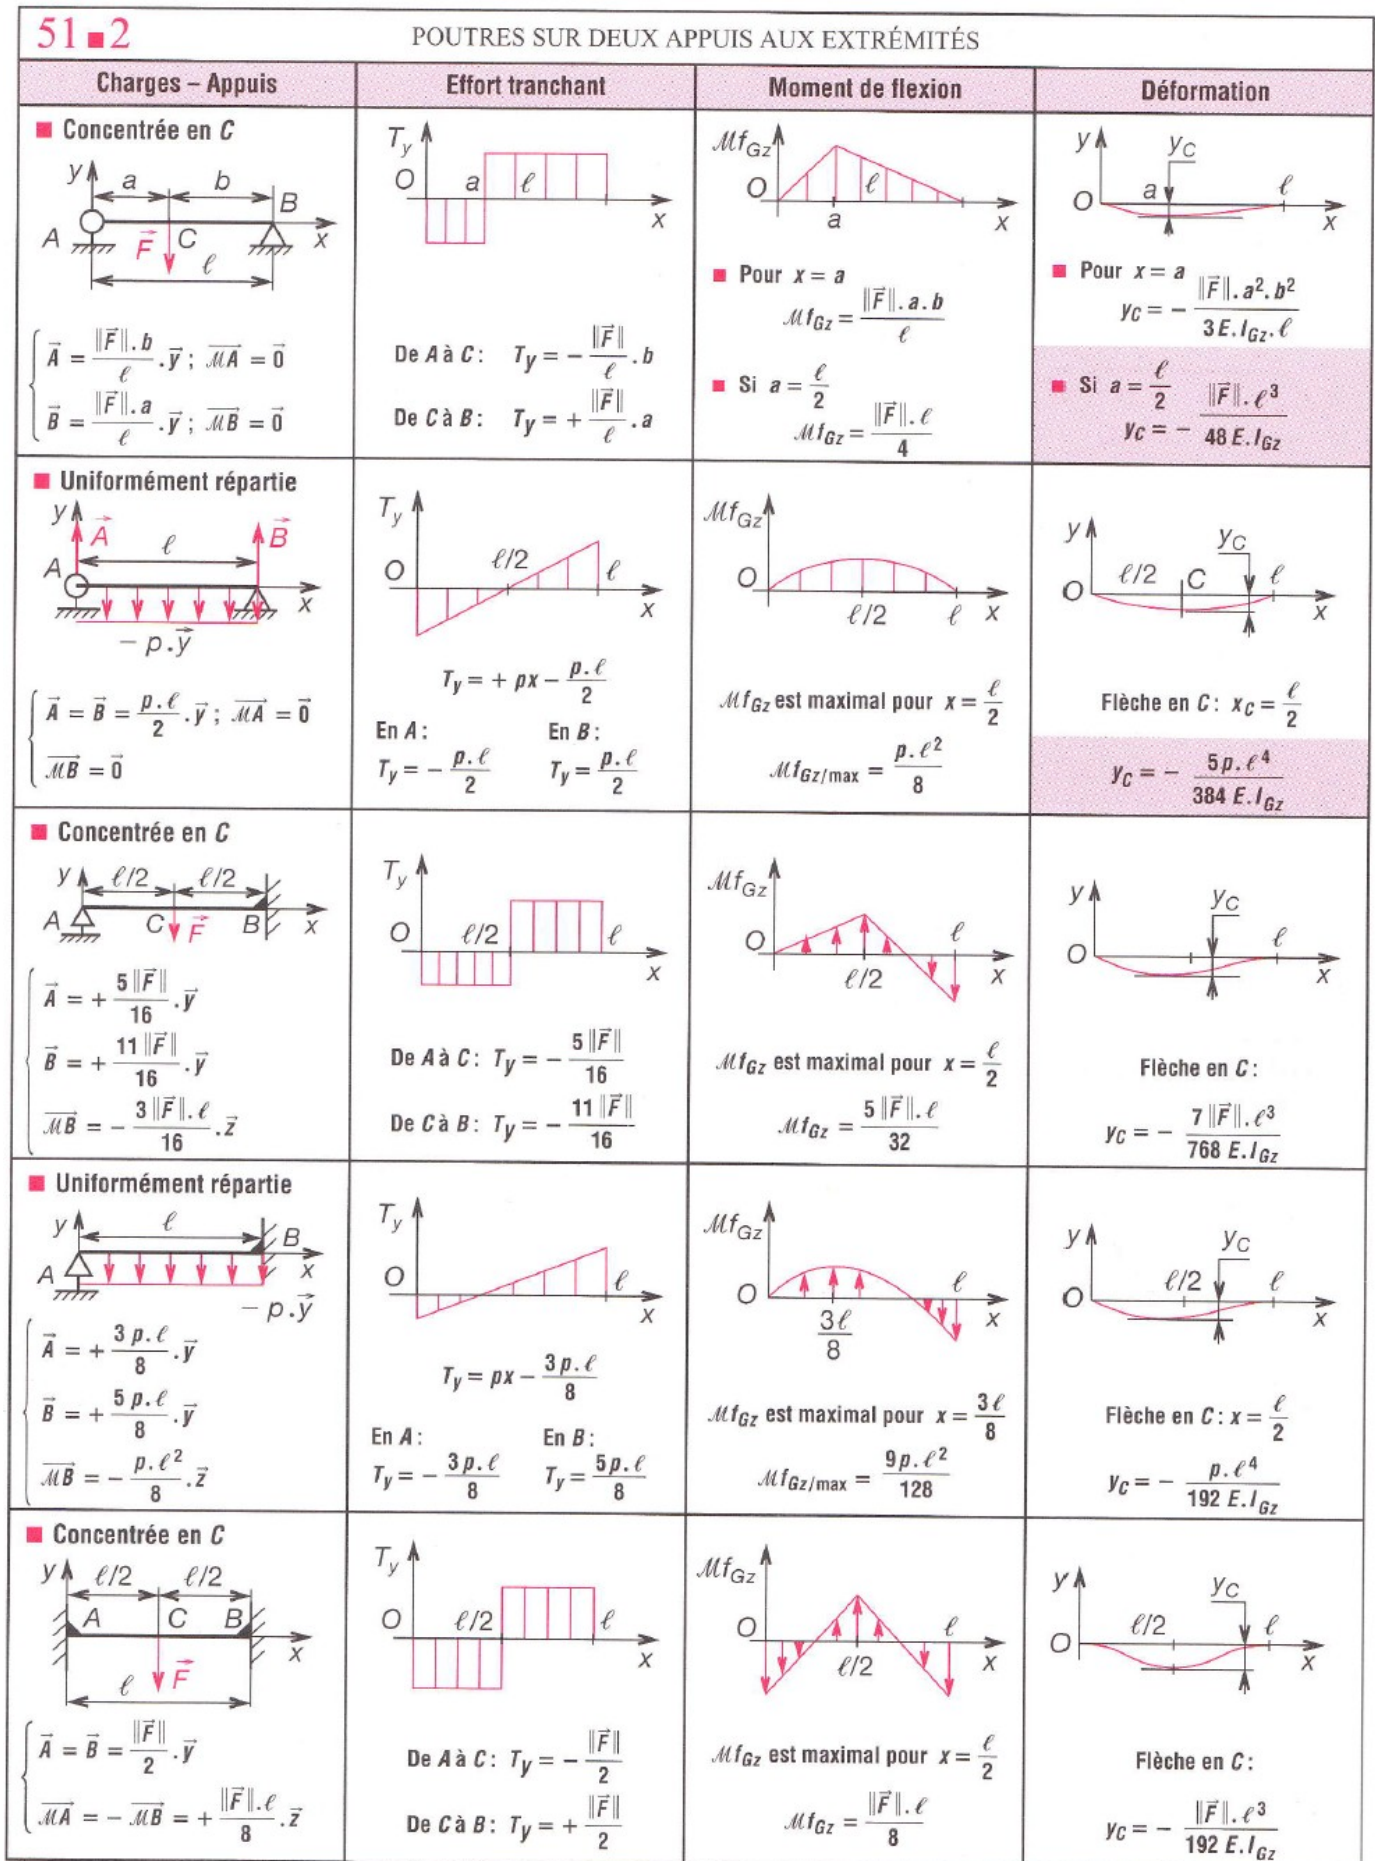 51■2
POUTRES SUR DEUX APPUIS AUX EXTRÉMITÉS
Charges – Appuis
Effort tranchant
Moment de flexion
Déformation
■ Concentrée en C
y
a
b
B
A
F⃗
C
x
ℓ
{ A⃗ = ‖F⃗‖.b / ℓ . y⃗ ; ℳA⃗ = 0⃗
B⃗ = ‖F⃗‖.a / ℓ . y⃗ ; ℳB⃗ = 0⃗
T_y
O
a
ℓ
x
De A à C : T_y = − ‖F⃗‖ / ℓ . b
De C à B : T_y = + ‖F⃗‖ / ℓ . a
ℳf_Gz
O
ℓ
a
x
■ Pour x = a
ℳf_Gz = ‖F⃗‖.a.b / ℓ
■ Si a = ℓ / 2
ℳf_Gz = ‖F⃗‖.ℓ / 4
y
y_C
O
a
ℓ
x
■ Pour x = a
y_C = − ‖F⃗‖.a².b² / 3E.I_Gz.ℓ
■ Si a = ℓ / 2
y_C = − ‖F⃗‖.ℓ³ / 48 E.I_Gz
■ Uniformément répartie
y
A⃗
ℓ
B⃗
A
x
− p.y⃗
{ A⃗ = B⃗ = p.ℓ / 2 . y⃗ ; ℳA⃗ = 0⃗
ℳB⃗ = 0⃗
T_y
O
ℓ/2
ℓ
x
T_y = + px − p.ℓ / 2
En A : En B :
T_y = − p.ℓ / 2 T_y = p.ℓ / 2
ℳf_Gz
O
ℓ/2
ℓ
x
ℳf_Gz est maximal pour x = ℓ / 2
ℳf_Gz/max = p.ℓ² / 8
y
y_C
O
ℓ/2
C
ℓ
x
Flèche en C : x_C = ℓ / 2
y_C = − 5p.ℓ⁴ / 384 E.I_Gz
■ Concentrée en C
y
ℓ/2
ℓ/2
A
C
F⃗
B
x
{ A⃗ = + 5‖F⃗‖ / 16 . y⃗
B⃗ = + 11‖F⃗‖ / 16 . y⃗
ℳB⃗ = − 3‖F⃗‖.ℓ / 16 . z⃗
T_y
O
ℓ/2
ℓ
x
De A à C : T_y = − 5‖F⃗‖ / 16
De C à B : T_y = − 11‖F⃗‖ / 16
ℳf_Gz
O
ℓ/2
ℓ
x
ℳf_Gz est maximal pour x = ℓ / 2
ℳf_Gz = 5‖F⃗‖.ℓ / 32
y
y_C
O
ℓ
x
Flèche en C :
y_C = − 7‖F⃗‖.ℓ³ / 768 E.I_Gz
■ Uniformément répartie
y
ℓ
B
A
x
− p.y⃗
{ A⃗ = + 3p.ℓ / 8 . y⃗
B⃗ = + 5p.ℓ / 8 . y⃗
ℳB⃗ = − p.ℓ² / 8 . z⃗
T_y
O
ℓ
x
T_y = px − 3p.ℓ / 8
En A : En B :
T_y = − 3p.ℓ / 8 T_y = 5p.ℓ / 8
ℳf_Gz
O
3ℓ / 8
ℓ
x
ℳf_Gz est maximal pour x = 3ℓ / 8
ℳf_Gz/max = 9p.ℓ² / 128
y
y_C
O
ℓ/2
ℓ
x
Flèche en C : x = ℓ / 2
y_C = − p.ℓ⁴ / 192 E.I_Gz
■ Concentrée en C
y
ℓ/2
ℓ/2
A
C
B
x
F⃗
ℓ
{ A⃗ = B⃗ = ‖F⃗‖ / 2 . y⃗
ℳA⃗ = − ℳB⃗ = + ‖F⃗‖.ℓ / 8 . z⃗
T_y
O
ℓ/2
ℓ
x
De A à C : T_y = − ‖F⃗‖ / 2
De C à B : T_y = + ‖F⃗‖ / 2
ℳf_Gz
O
ℓ/2
ℓ
x
ℳf_Gz est maximal pour x = ℓ / 2
ℳf_Gz = ‖F⃗‖.ℓ / 8
y
y_C
O
ℓ/2
ℓ
x
Flèche en C :
y_C = − ‖F⃗‖.ℓ³ / 192 E.I_Gz